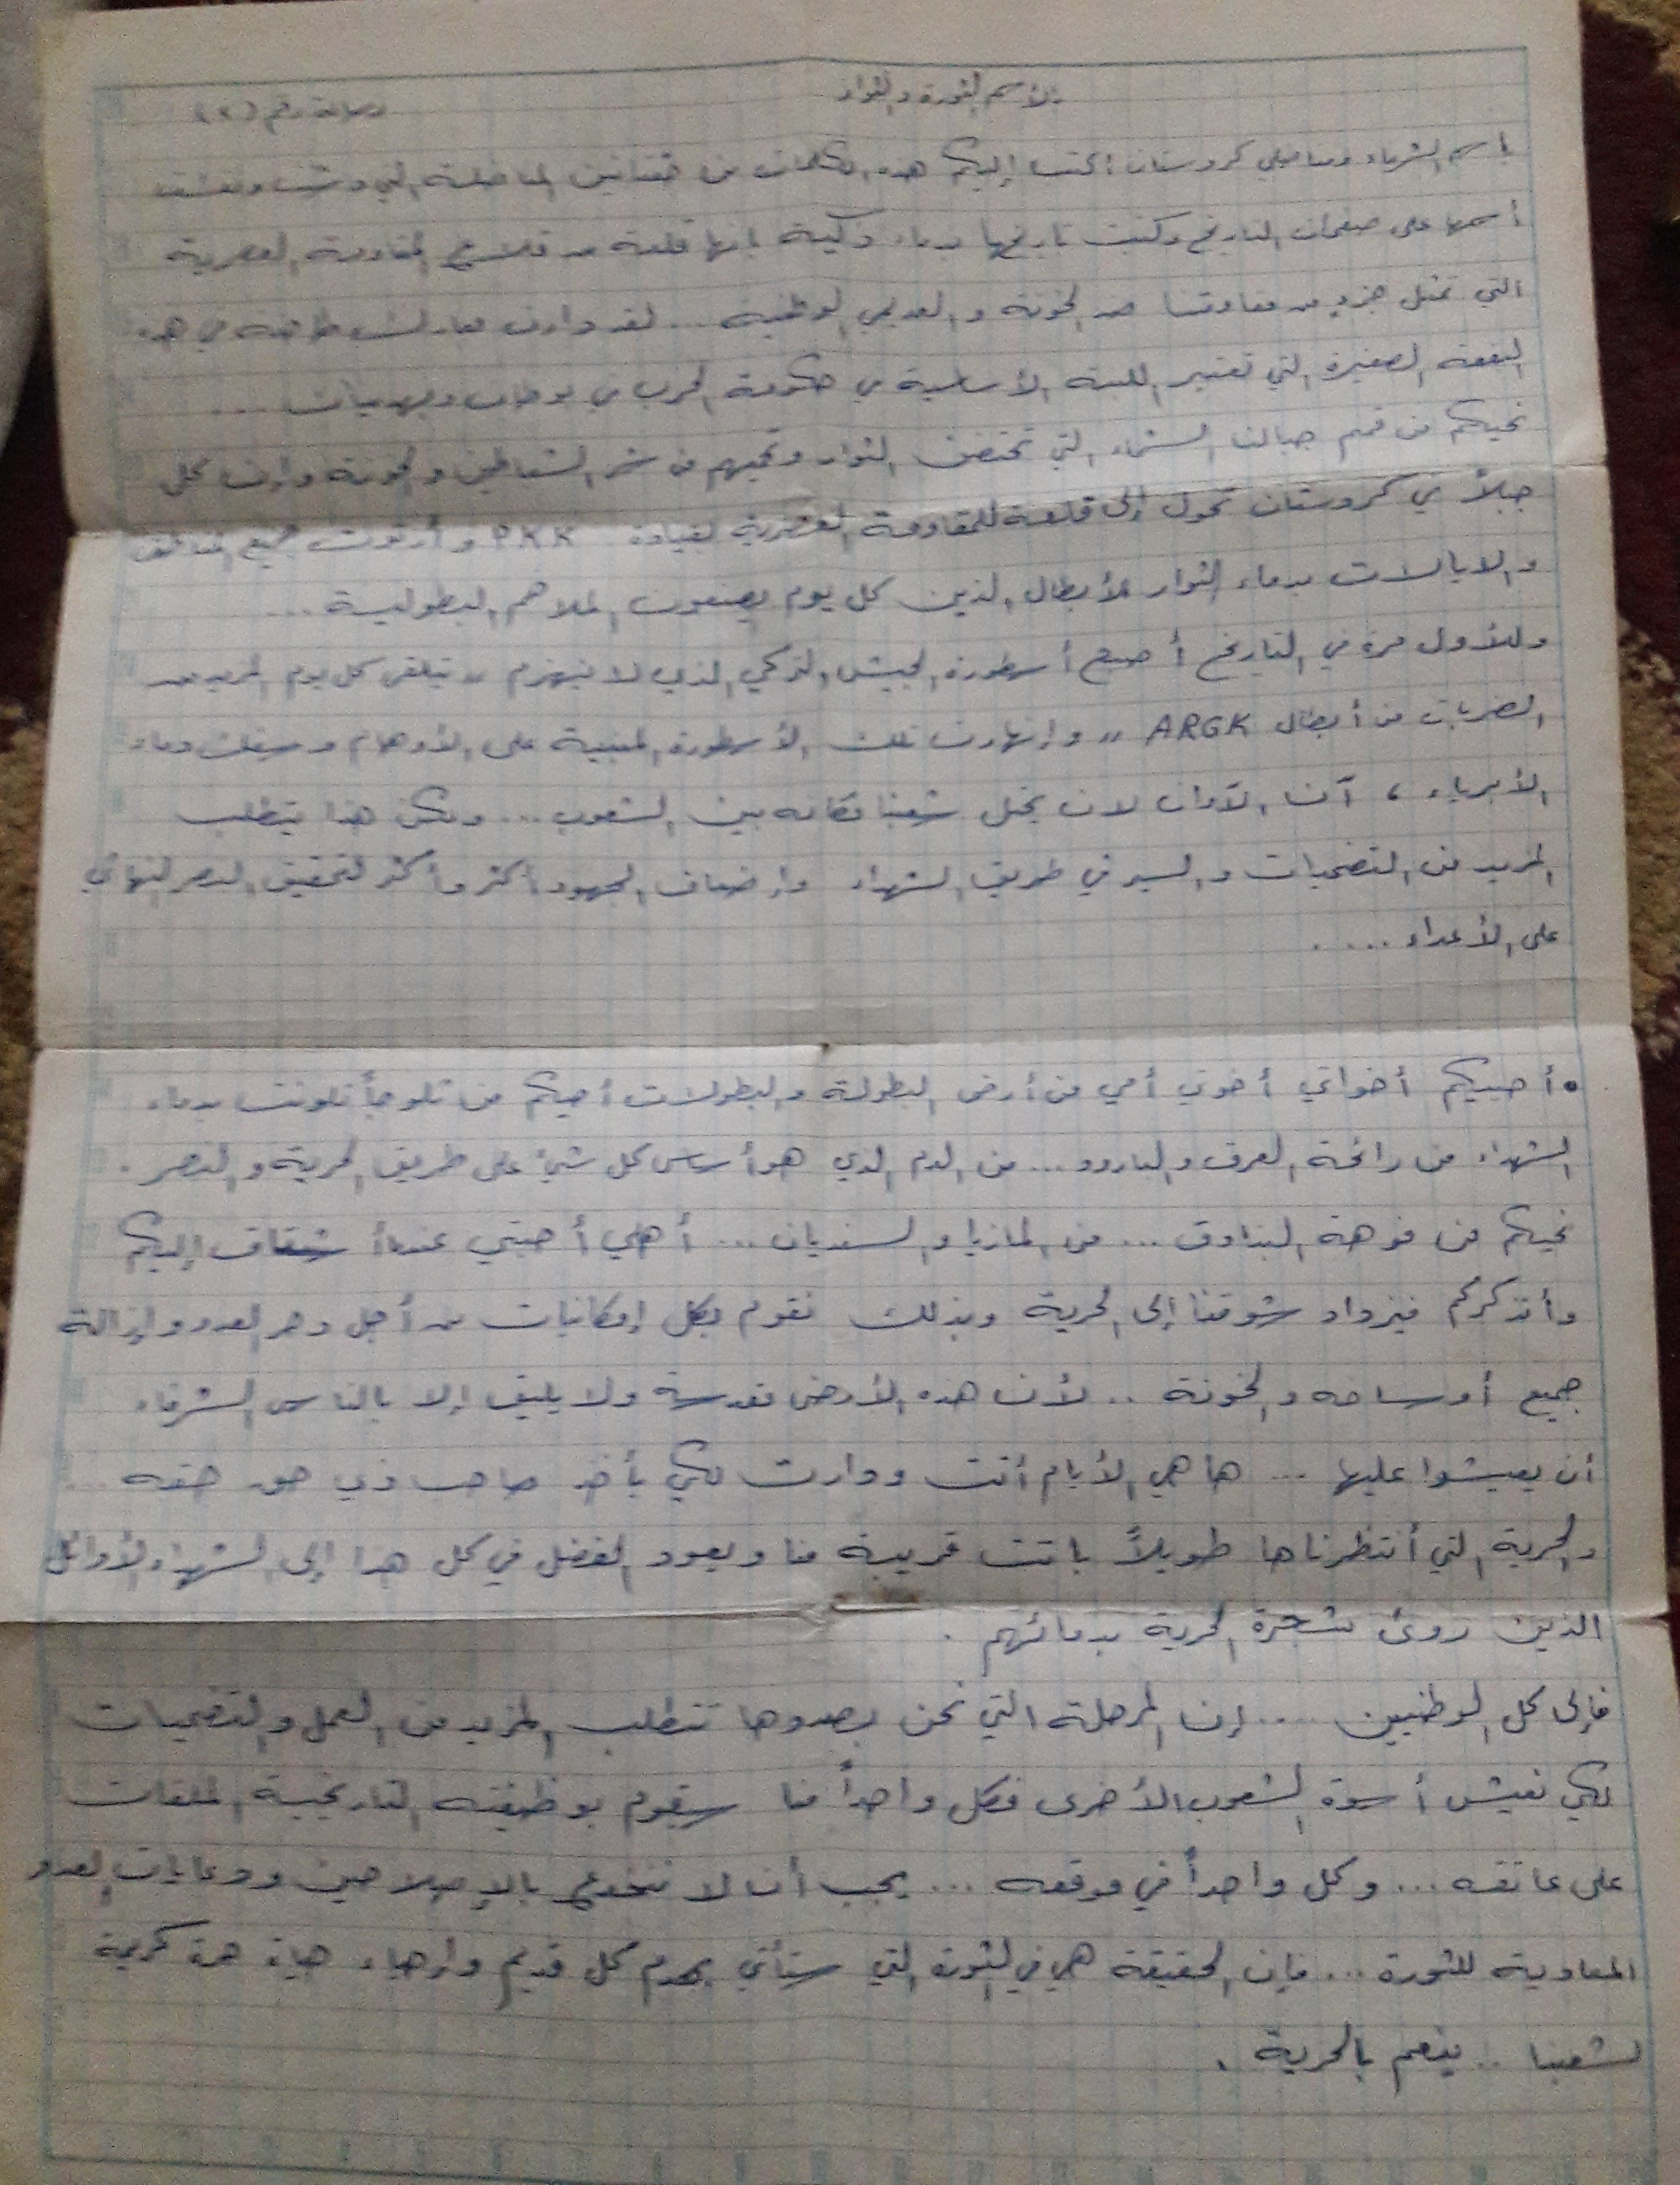 بالأسم الثورة والثوار
رسالة رقم (٢)
باسم الشرفاء ومناضلي كردستان اكتب إليكم هذه الكلمات من المناضلة التي ونقشت
أسمها على صفحات التاريخ وكتبت تاريخها بدماء زكية إنها قلعة من قلاع المقاومة العصرية
التي تمثل جزء من مقاومتنا ضد الخونة و العديمي الوطنية ... لقد دارت معارك طاحنة في هذه
البقعة الصغيرة التي تعتبر اللبنة الأساسية في حكومة الحرب في بوطان وبهدينان ...
نحييكم من قمم جبالنا الشماء التي تحتضن الثوار وتحميهم من شر الشياطين والخونة وإن كل
جبلاً في كردستان تحول إلى قلعة للمقاومة العصرية لقيادة PKK و أرتوت جميع المناطق
والايالات بدماء الثوار الأبطال الذين كل يوم يصنعون الملاحم البطولية ...
وللأول مرة في التاريخ أصبح أسطورة الجيش التركي الذي لا ينهزم ,, يتلقى كل يوم المزيد من
الضربات من أبطال ARGK ,, وإنهارت تلك الأسطورة المبنية على الأوهام وسفك دماء
الأبرياء ، آن الآوان لان يحتل شعبنا مكانه بين الشعوب ... ولكن هذا يتطلب
المزيد من التضحيات والسير في طريق الشهداء وإضعاف الجهود أكثر وأكثر لتحقيق النصر النهائي
على الأعداء .....
• أحييكم أخواتي أخوتي أمي من أرض البطولة والبطولات أحييكم من ثلوجاً تلونت بدماء
الشهداء من رائحة العرق والبارود ... من الدم الذي هو أساس كل شيئ على طريق الحرية والنصر .
نحييكم من فوهة البنادق ... من المازيا والسنديان ... أهلي أحبتي عندما أشتاق إليكم
وأتذكركم فيزداد شوقنا إلى الحرية وبذلك نقوم بكل إمكانيات من أجل دحر العدو وإزالة
جميع أوساخه والخونة .. لأن هذه الأرض مقدسة ولا يليق إلا بالناس الشرفاء
أن يعيشوا عليها ... ها هي الأيام أتت ودارت لكي يأخذ صاحب ذي حق حقه ...
والحرية التي أنتظرناها طويلاً باتت قريبة منا ويعود الفضل في كل هذا إلى الشهداء الأوائل
الذين روئ شجرة الحرية بدمائهم .
فإلى كل الوطنيين .... إن المرحلة التي نحن بصددها تتطلب المزيد من العمل والتضحيات
لكي نعيش أسوة الشعوب الأخرى فكل واحداً منا سيقوم بوظيفته التاريخية الملقات
على عاتقه ... وكل واحداً في موقعه ... يجب أن لا ننخدع بالإصلاحين ودعايات العدو
المعادية للثورة ... فإن الحقيقة هي في الثورة التي ستأتي بهدم كل قديم وإحياء حياة حرة كريمة
لشعبنا .. ينعم بالحرية .